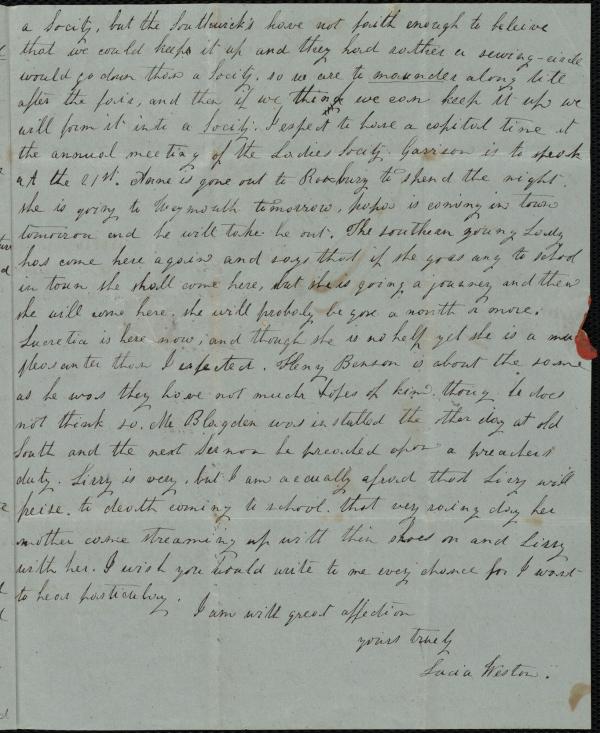 a Socity, but the Southwick's have not faith enough to beleive
that we could keep it up and they had rather a sewing-circle
would go down than a Socity. so we are to maunder along till
after the fair, and then if we think we can keep it up we
will form it into a Socity. I expect to have a capital time at
the annual meeting of the Ladies Socity. Garrison is to speak
at the 21st. Anne is gone out to Roxbury to spend the night.
she is going to Weymouth tomorrow, papa is coming in town
tomorrow and he will take he out. The southern young Lady
has come here again and says that if she goes any to school
in town she shall come here, but she is going a journey and then
she will come here. she will probaly be gone a month or more.
Lucretia is here now, and though she is no help yet she is a
pleasanter than I expected. Heny Benson is about the same
as he was they have not much hopes of him. thoug he does
not think so. Mr Blagden was installed the other day at old
South and the next Sermon he preached upon a preachers
duty. Lizzy is very, but I am acually afraid that Lizzy will
preise to death coming to school. that very raing day her
mother come streaming up with thin shoes on and Lizzy
with her. I wish you would write to me every chance for I want
to hear particulary.
I am with great affection
yours truely
Lucia Weston.